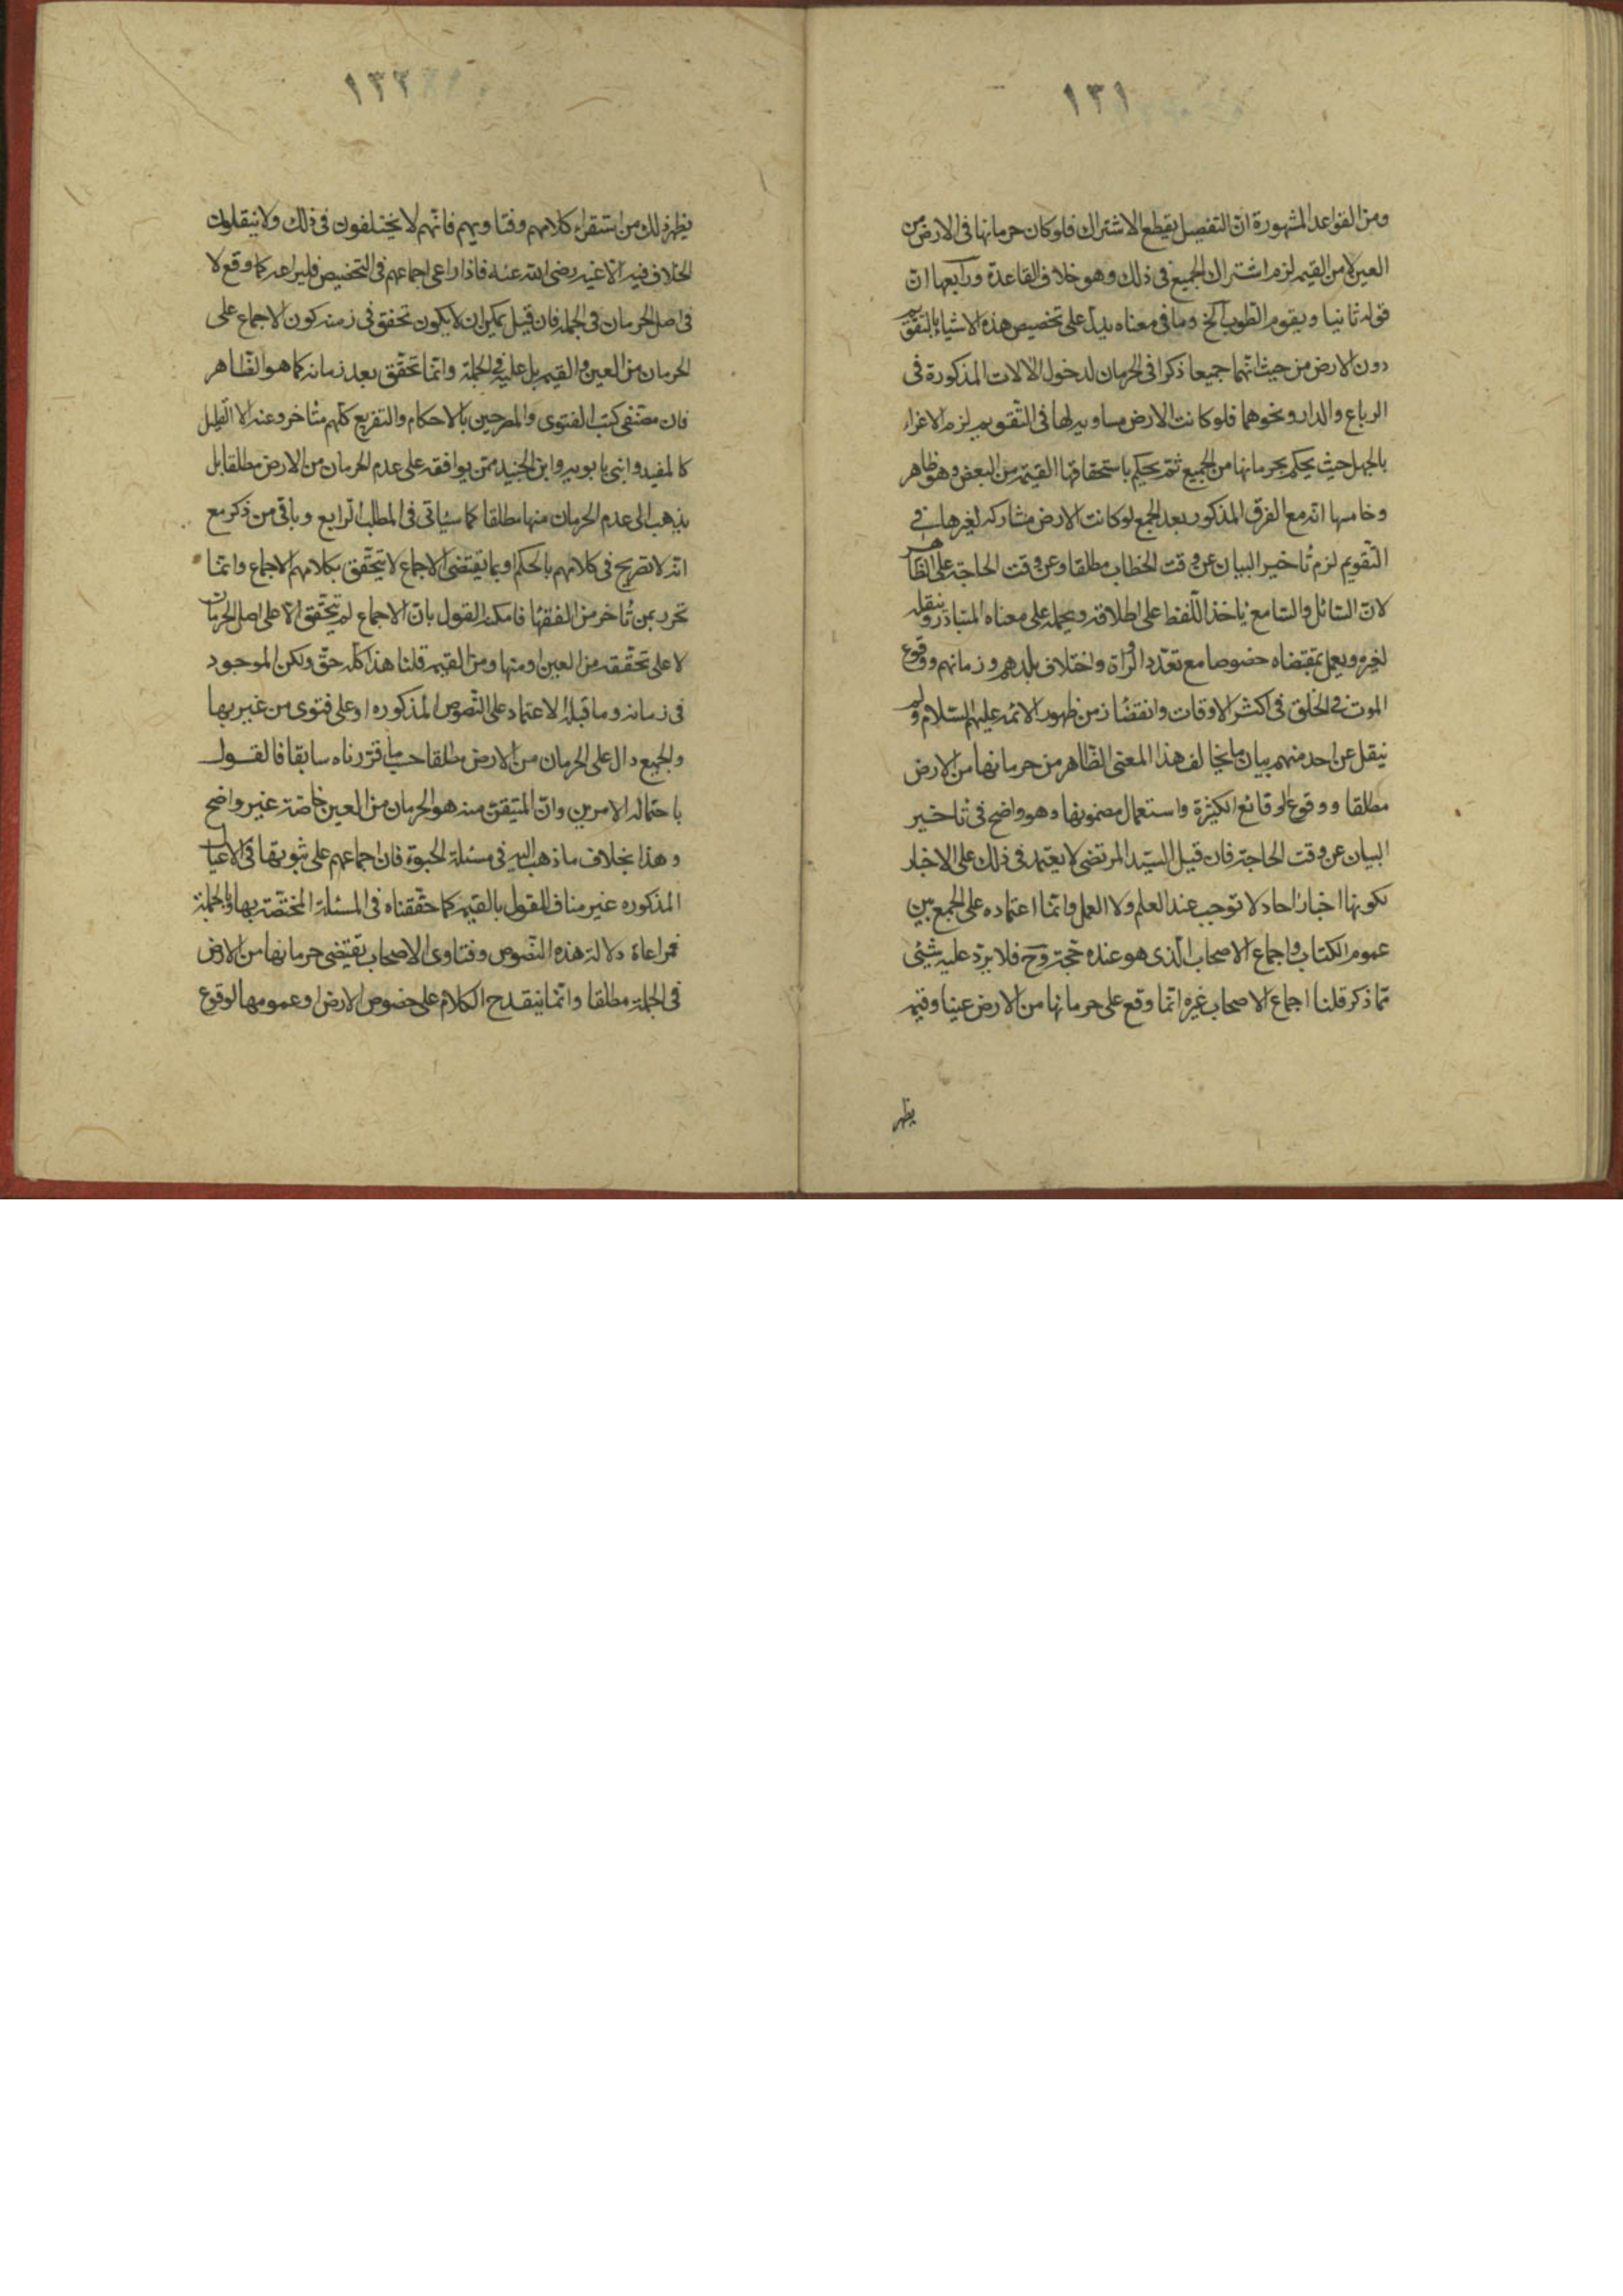 ١٣١
ومن القواعد المشهورة ان التفصيل يقطع الاشتراك فلو كان حرمانها فى الارض من
العين لا من القيم لزم اشتراك الجميع فى ذلك وهو خلاف القاعدة ورابعها انّ
قوله ثانيا ويقوم الطوب الخ وما فى معناه يدلّ على تخصيص هذه الاشياء بالتقويم
دون الارض من حيث انهما جميعا ذكرا فى الحرمان لدخول الالات المذكورة فى
الرباع والدار ونحوهما فلو كانت الارض مساويه لها فى التقويم لزم الاغراء
بالجهل حيث يحكم بحرمانها من الجميع ثم يحكم باستحقاقها القيمة من البعض وهو ظاهر
وخامسها انه مع الفرق المذكور بعد الجمع لو كانت الارض مشاركه لغيرها فى
التقويم لزم تأخير البيان عن وقت الخطاب مطلقا وعن وقت الحاجة على الظاهر
لانّ السائل والسامع ياخذ اللفظ على اطلاقه ويحمله على معناه المتبادر وينقله
لغيره ويعمل بمقتضاه خصوصا مع تعدد الرواة واختلاف بلدهم وزمانهم ووقوع
الموت فى الخلق فى اكثر الاوقات وانقضاء زمن ظهور الائمه عليهم السلام ولم
ينقل عن احد منهم بيان ما يخالف هذا المعنى الظاهر من حرمانها من الارض
مطلقا ووقوع الوقائع الكثيرة واستعمال مضمونها وهو واضح فى تاخير
البيان عن وقت الحاجة فان قيل السيّد المرتضى لا يعتمد فى ذلك على الاخبار
لكونها اخبار احاد لا توجب عند العلم ولا العمل وانما اعتماده على الجمع بين
عموم الكتاب واجماع الاصحاب الّذى هو عنده حجة وح فلا يرد عليه شئ
مما ذكر قلنا اجماع الاصحاب غيره انما وقع على حرمانها من الارض عينا وقيمه
يظهر
١٣٢
يظهر ذلك من استقراء كلامهم وفتاويهم فانهم لا يختلفون فى ذلك ولا ينقلون
الخلاف فيه الا عنه رضى الله عنه فاذا راعى اجماعهم فى التخصيص فليراعه كما وقع لا
فى اصل الحرمان فى الجمله فان قيل يمكن ان لا يكون تحقق فى زمنه كون الاجماع على
الحرمان من العين والقيم بل عليه فى الجملة وانما تحقق بعد زمانه كما هو الظاهر
فان مصنفى كتب الفتوى والمصرحين بالاحكام والتفريع كلهم متاخر وعنه الا القليل
كالمفيد وابنى بابويه وابن الجنيد ممن يوافقه على عدم الحرمان من الارض مطلقا بل
يذهب الى عدم الحرمان منها مطلقا كما سيأتى فى المطلب الرابع وباقى من ذكر مع
انه لا تصريح فى كلامهم بالحكم او بما يقتضى الاجماع لا يتحقق بكلامهم الاجماع وانما
تحرر بمن تأخر من الفقهاء فامكنه القول بان الاجماع لم يتحقق الا على اصل الحرمان
لا على تحققه من العين او منها ومن القيم قلنا هذا كله حق ولكن الموجود
فى زمانه وما قبله الاعتماد على النصوص المذكوره او على فتوى من غير بها
والجميع دال على الحرمان من الارض مطلقا حسب ما قررناه سابقا فالقول
باحتماله الامرين وانّ المتيقن منه هو الحرمان من العين خاصة غير واضح
وهذا بخلاف ما ذهب اليه فى مسئلة الحبوة فان اجماعهم على ثبوتها فى الاعيان
المذكوره غير مناف للقول بالقيم كما حققناه فى المسئلة المختصة بها وبالجملة
فمراعاة دلالة هذه النصوص وفتاوى الاصحاب تقتضى حرمانها من الارض
فى الجملة مطلقا وانما ينقدح الكلام على خصوص الارض او عمومها لوقوع